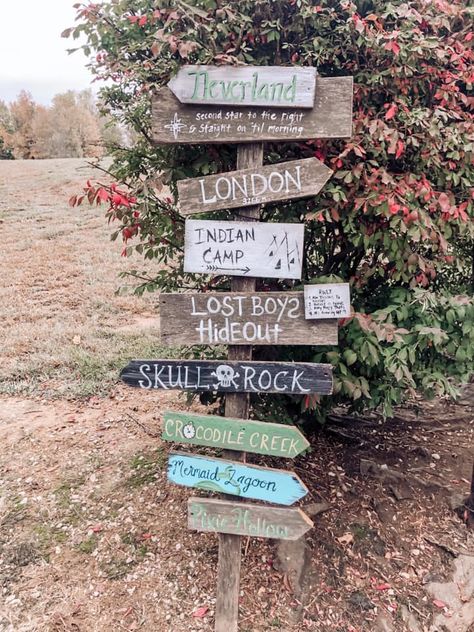 Neverland
second star to the right
& straight on 'til morning
LONDON
INDIAN
CAMP
LOST BOYS
HideOut
SKULL ROCK
CROCODILE CREEK
Mermaid Lagoon
Pixie Hollow